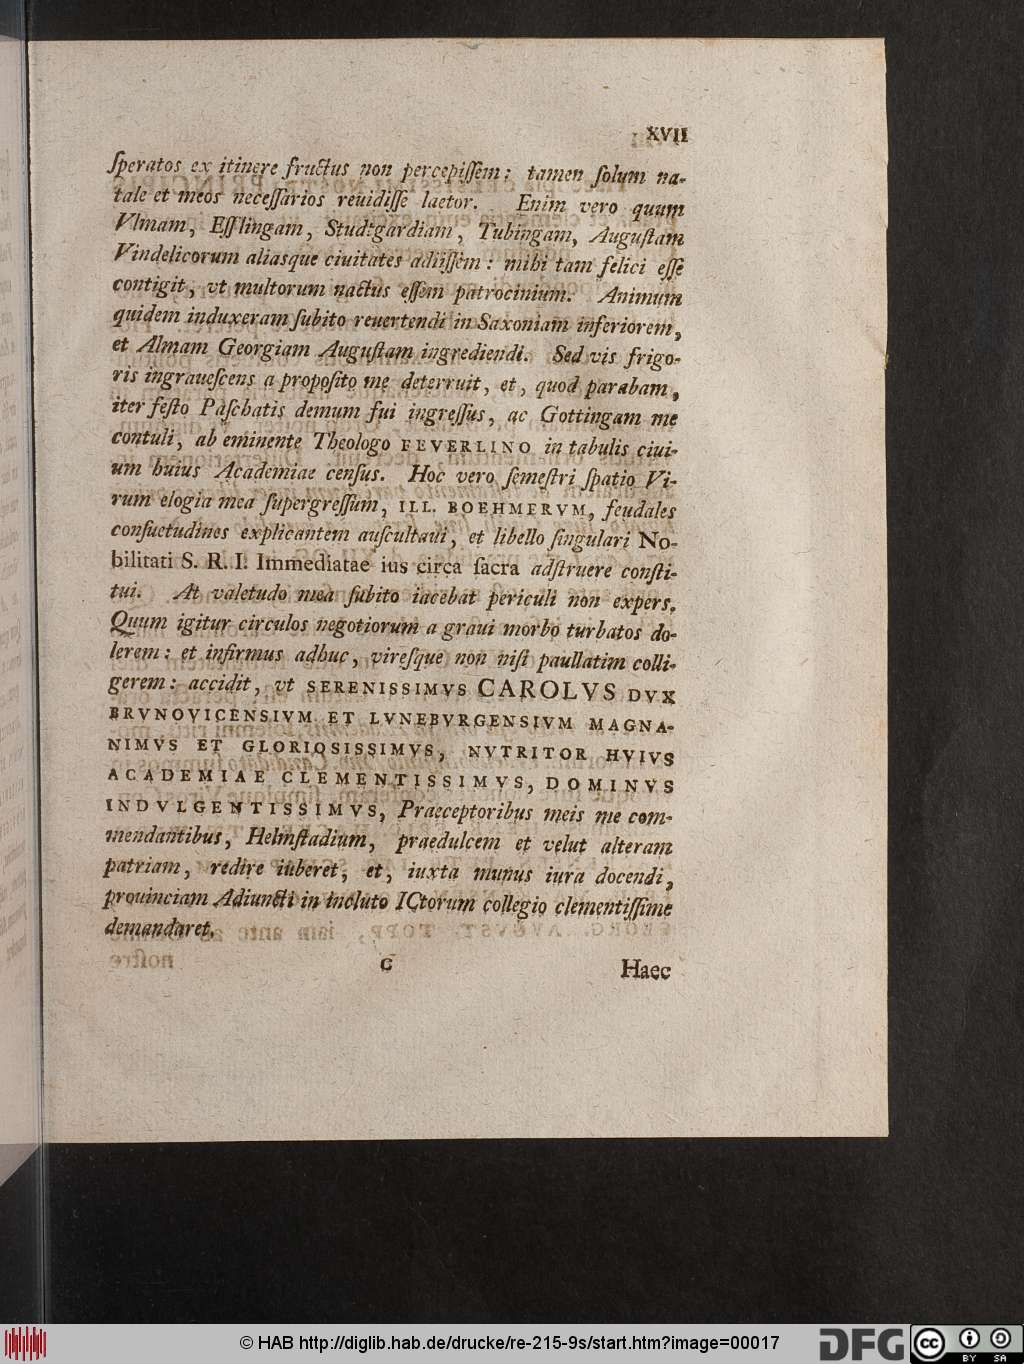 XVII
ſperatos ex itinere fructus non percepiſſem: tamen ſolum na-
tale et meos neceſſarios reuidiſſe laetor. Enim vero quum
Vlmam, Eſſlingam, Studtgardiam, Tubingam, Auguſtam
Vindelicorum aliasque ciuitates adiiſſem: mihi tam felici eſſe
contigit, vt multorum nactus eſſem patrocinium. Animum
quidem induxeram ſubito reuertendi in Saxoniam inferiorem,
et Almam Georgiam Auguſtam ingrediendi. Sed vis frigo-
ris ingraueſcens a propoſito me deterruit, et, quod parabam,
iter feſto Paſchatis demum fui ingreſſus, ac Gottingam me
contuli, ab eminente Theologo FEVERLINO in tabulis ciui-
um huius Academiae cenſus. Hoc vero ſemeſtri ſpatio Vi-
rum elogia mea ſupergreſſum, ILL. BOEHMERVM, feudales
conſuetudines explicantem auſcultaui, et libello ſingulari No-
bilitati S. R. I. Immediatae ius circa ſacra adſtruere conſti-
tui. At valetudo mea ſubito iacebat periculi non expers.
Quum igitur circulos negotiorum a graui morbo turbatos do-
lerem: et infirmus adhuc, viresque non niſi paullatim colli-
gerem: accidit, vt SERENISSIMVS CAROLVS DVX
BRVNOVICENSIVM ET LVNEBVRGENSIVM MAGNA-
NIMVS ET GLORIOSISSIMVS, NVTRITOR HVIVS
ACADEMIAE CLEMENTISSIMVS, DOMINVS
INDVLGENTISSIMVS, Praeceptoribus meis me com-
mendantibus, Helmſtadium, praedulcem et velut alteram
patriam, redire iuberet, et, iuxta munus iura docendi,
prouinciam Adiuncti in incluto ICtorum collegio clementiſſime
demandaret.
C Haec
© HAB http://diglib.hab.de/drucke/re-215-9s/start.htm?image=00017
DFG
cc BY SA